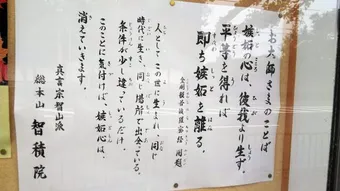 お大師さまのことば
嫉妬の心は、彼我より生ず。
平等を得れば、
即ち嫉妬を離る。
人としてこの世に生まれ、同じ
時代に生き、同じ場所で出会っている。
条件が少し違っているだけ。
このことに気付けば、嫉妬心は、
消えていきます。
真言宗智山派
総本山 智積院